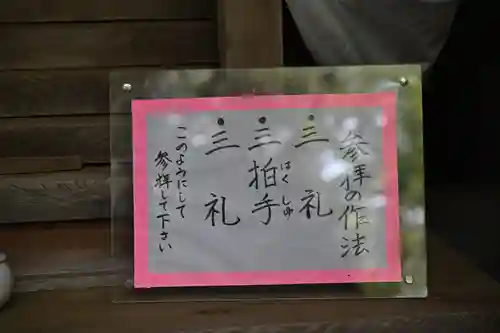 参拝の作法
三礼
三拍手
はくしゅ
三礼
このようにして
参拝して下さい